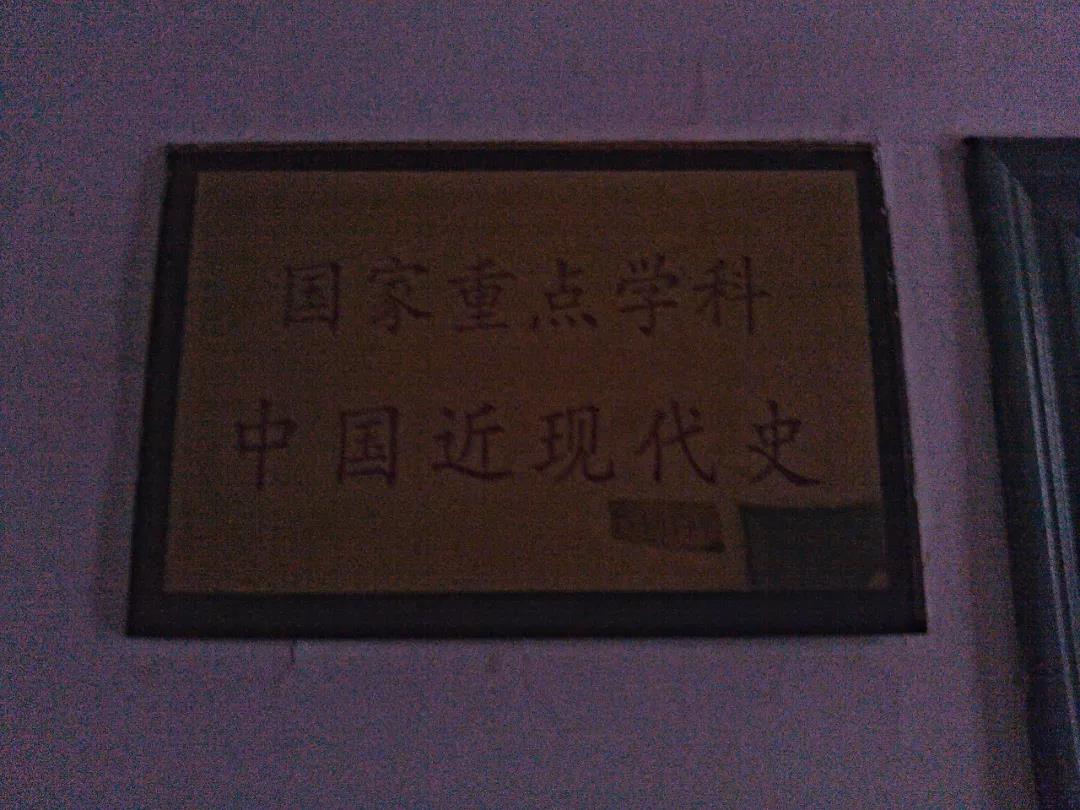 国家重点学科
中国近现代史